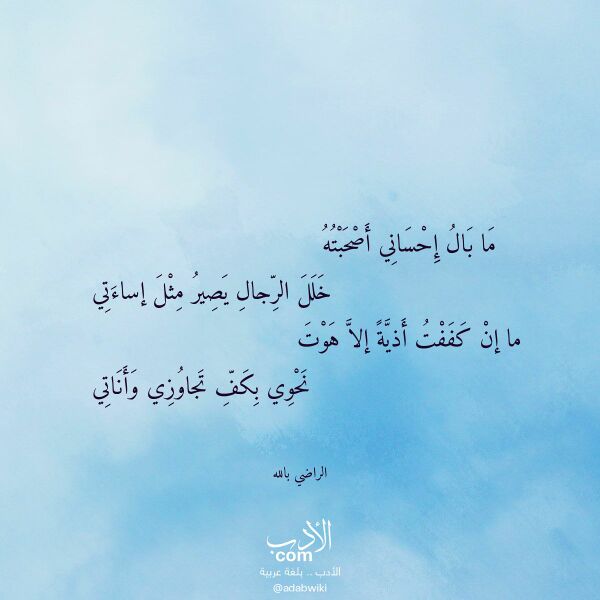 مَا بَالُ إِحْسَانِي أَصْحَبْتُهُ
خَلَلَ الرِّجالِ يَصِيرُ مِثْلَ إساءَتِي
ما إنْ كَفَفْتُ أَذيَّةً إلاَّ هَوْتَ
نَحْوِي بِكَفِّ تَجاوُزِي وَأَنَاتِي
الراضي بالله
الأدب
com
الأدب .. بلغة عربية
@adabwiki